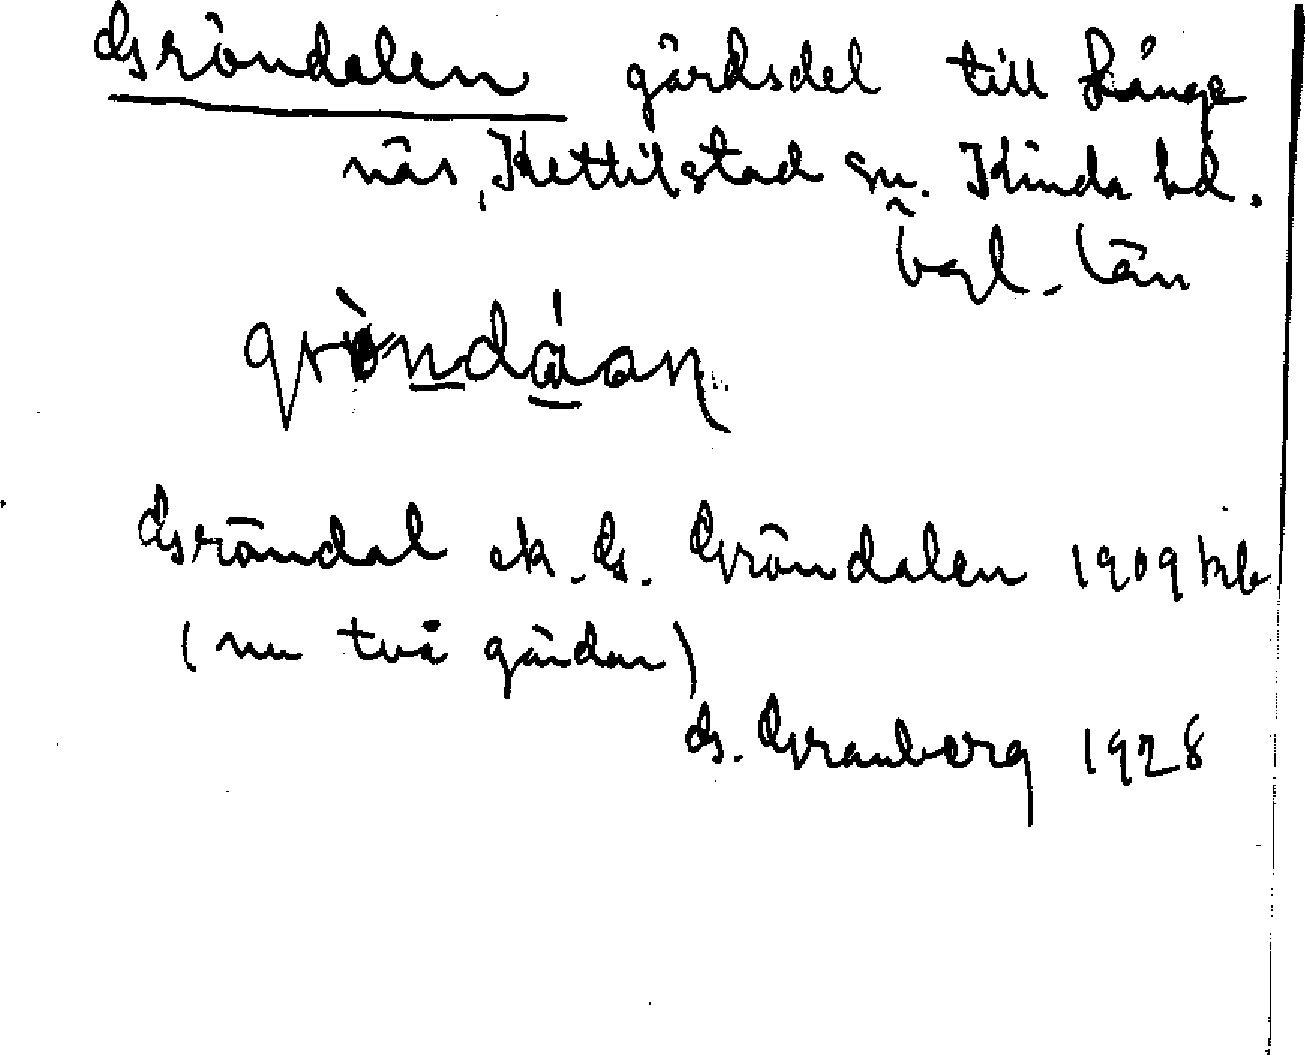 Gröndalen gårdsdel till Långe
näs, Kettilstad sn. Kinda hd.
Ögl. län
gròndáan
Gröndal ek. G. Gröndalen 1909 kb
(nu två gårdar)
G. Granberg 1928